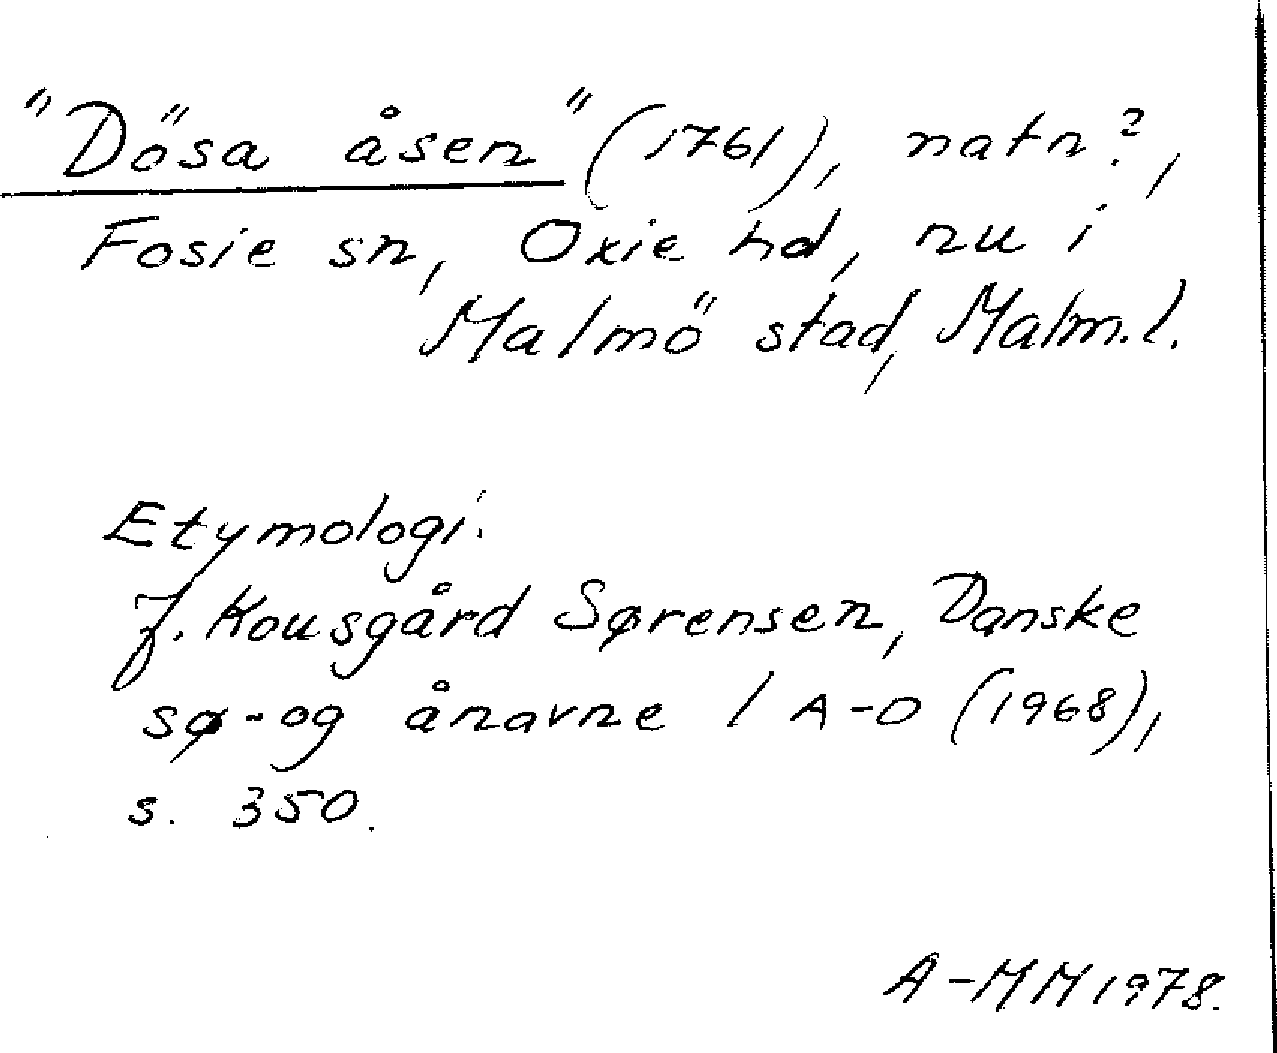 "Dösa åsen" (1761), natn?,
Fosie sn, Oxie hd, nu i
Malmö stad, Malm.l.
Etymologi:
J. Kousgård Sørensen, Danske
sø- og ånavne 1 A-D (1968),
s. 350.
A-MM 1978.